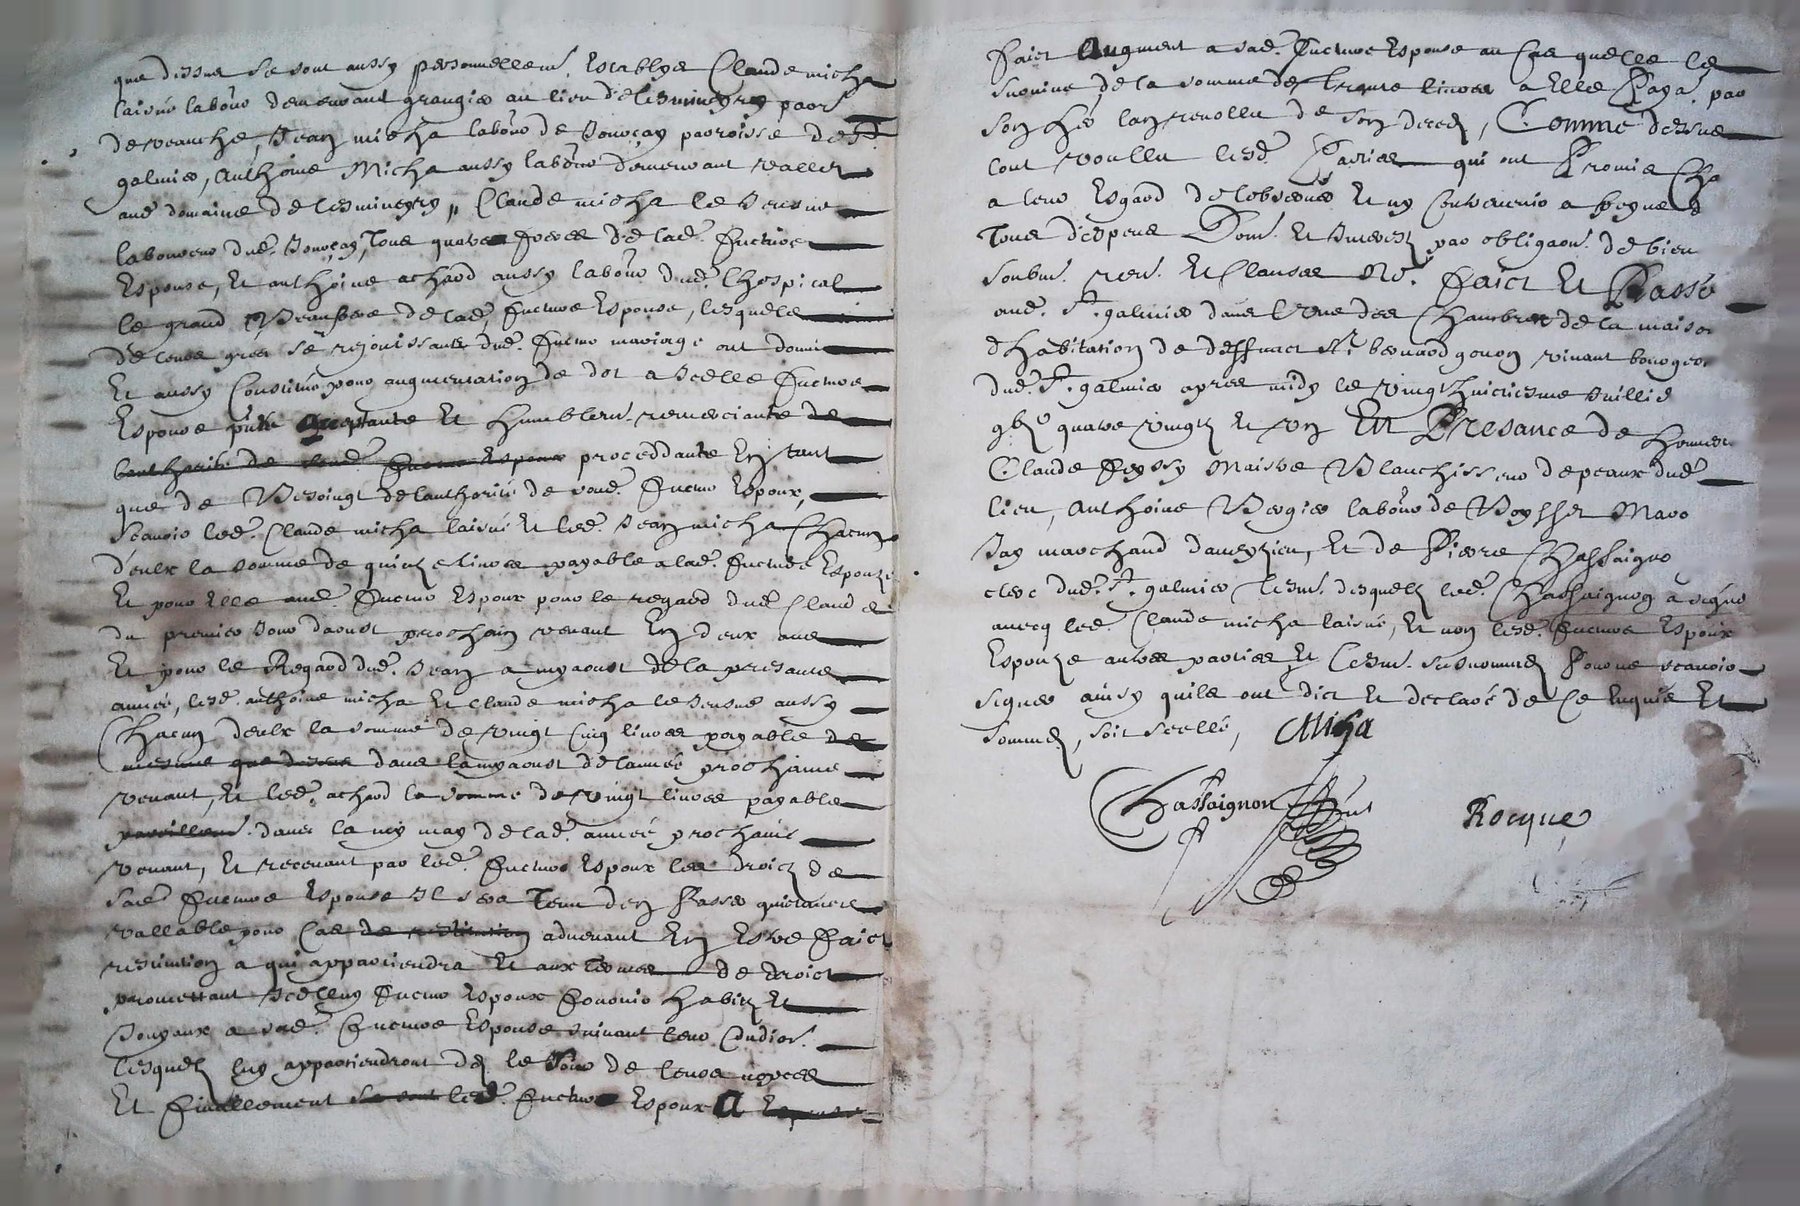 que dessus se sont aussy personnellemt. Establys Claude micha
laisné labour demeurant grangier au lieu de lesmineyry parr
de veauche, Jean micha labour de Bonoçay parroisse de St.
galmier, Anthoine Micha aussy labour demeurant vallet
aud domaine de lesmineyry, Claude micha le Jeusne
laboureur dud. Bonoçay, Tous quatre freres de lad. future
Espouse, Et anthoine achard aussy labour dud. lhospital
le grand Beaufrere de lad. future Espouse, lesquels
de leurs grez se rejouissants dud. futur mariage ont donné
Et aussy Constitué pour augmentation de dot a Icelle future
Espouse pnte acceptante Et humblemt. remerciante de
lauthorité de sond. futur Espoux proceddante En tant
que de Besoingt de lauthorité de sond. futur Espoux,
scavoir led. Claude micha laisné Et led. Jean micha Chacung
d'eulx la somme de quinze livres payable a lad. future Espouze
Et pour Elle aud. futur Espoux pour le regard dud Claude
du premier Jour daoust prochain venant En deux ans
Et pour le Regard dud. Jean a myaoust de la presante
année, lesd. anthoine micha Et Claude micha le Jeusne aussy
Chacung deulx la somme de vingt Cinq livres payable de
mesme que dessus dans la myaoust de lannée prochaine
venant, Et led. achard la somme de vingt livres payable
pareillemt. dans la my may de lad. année prochaine
venant, Et recevant par led. futur Espoux les droictz de
sad. future Espouse Il sera Tenu den Passer quictance
vallable pour Cas de restitution advenant En Estre faict
restitution a qui appartiendra Et aux termes de droict
promettant Icelluy futur Espoux fournir habitz Et
Joyaux a sad. future Espouse suivant leur Condion.
lesquelz luy appartiendront dez le Jour de leurs nopces
Et finallement se sont led. futur Espoux A Espouse
faict Augment a sad. future Espouse au Cas quelle le
survive, de la somme de trente livres a Elle Paya. par
son her lan revollu de son decedz, Comme dessus
lont voullu lesd. Parties qui ont Promis Cha
a leur Esgard de lobserver Et ny Contrevenir a peyne de
Tous despens Dom. Et Interestz par obligaon. de bien
soubm. ren. Et Clauses Nre. faict Et Passé
aud. St. galmier dans Lune des Chambres de la maison
dhabitation de deffunct Sr. bernard gonon vivant bourgeois
dud. St. galmier apres midy le vingt huictiesme Juillet
gbze quatre vingtz Et un En Presance de honneste
Claude foyssy Maistre Blanchisseur de peaux dud.
lieu, Anthoine Vergier labour de Boysset Marc
Jay marchand damezieu, Et de Pierre Chassaigno
clerc dud. St. galmier Tesm. desquelz led. Chassaignon a signé
avecq led. Claude micha laisné, Et non lesd. futurs Espoux
Espouze autres parties Et Tesm. susnommez Pour ne scavoir
signer ainsy quils ont dict Et declaré de Ce Enquis Et
sommez, soit scellé, CMicha
Chassaignon
Rocque